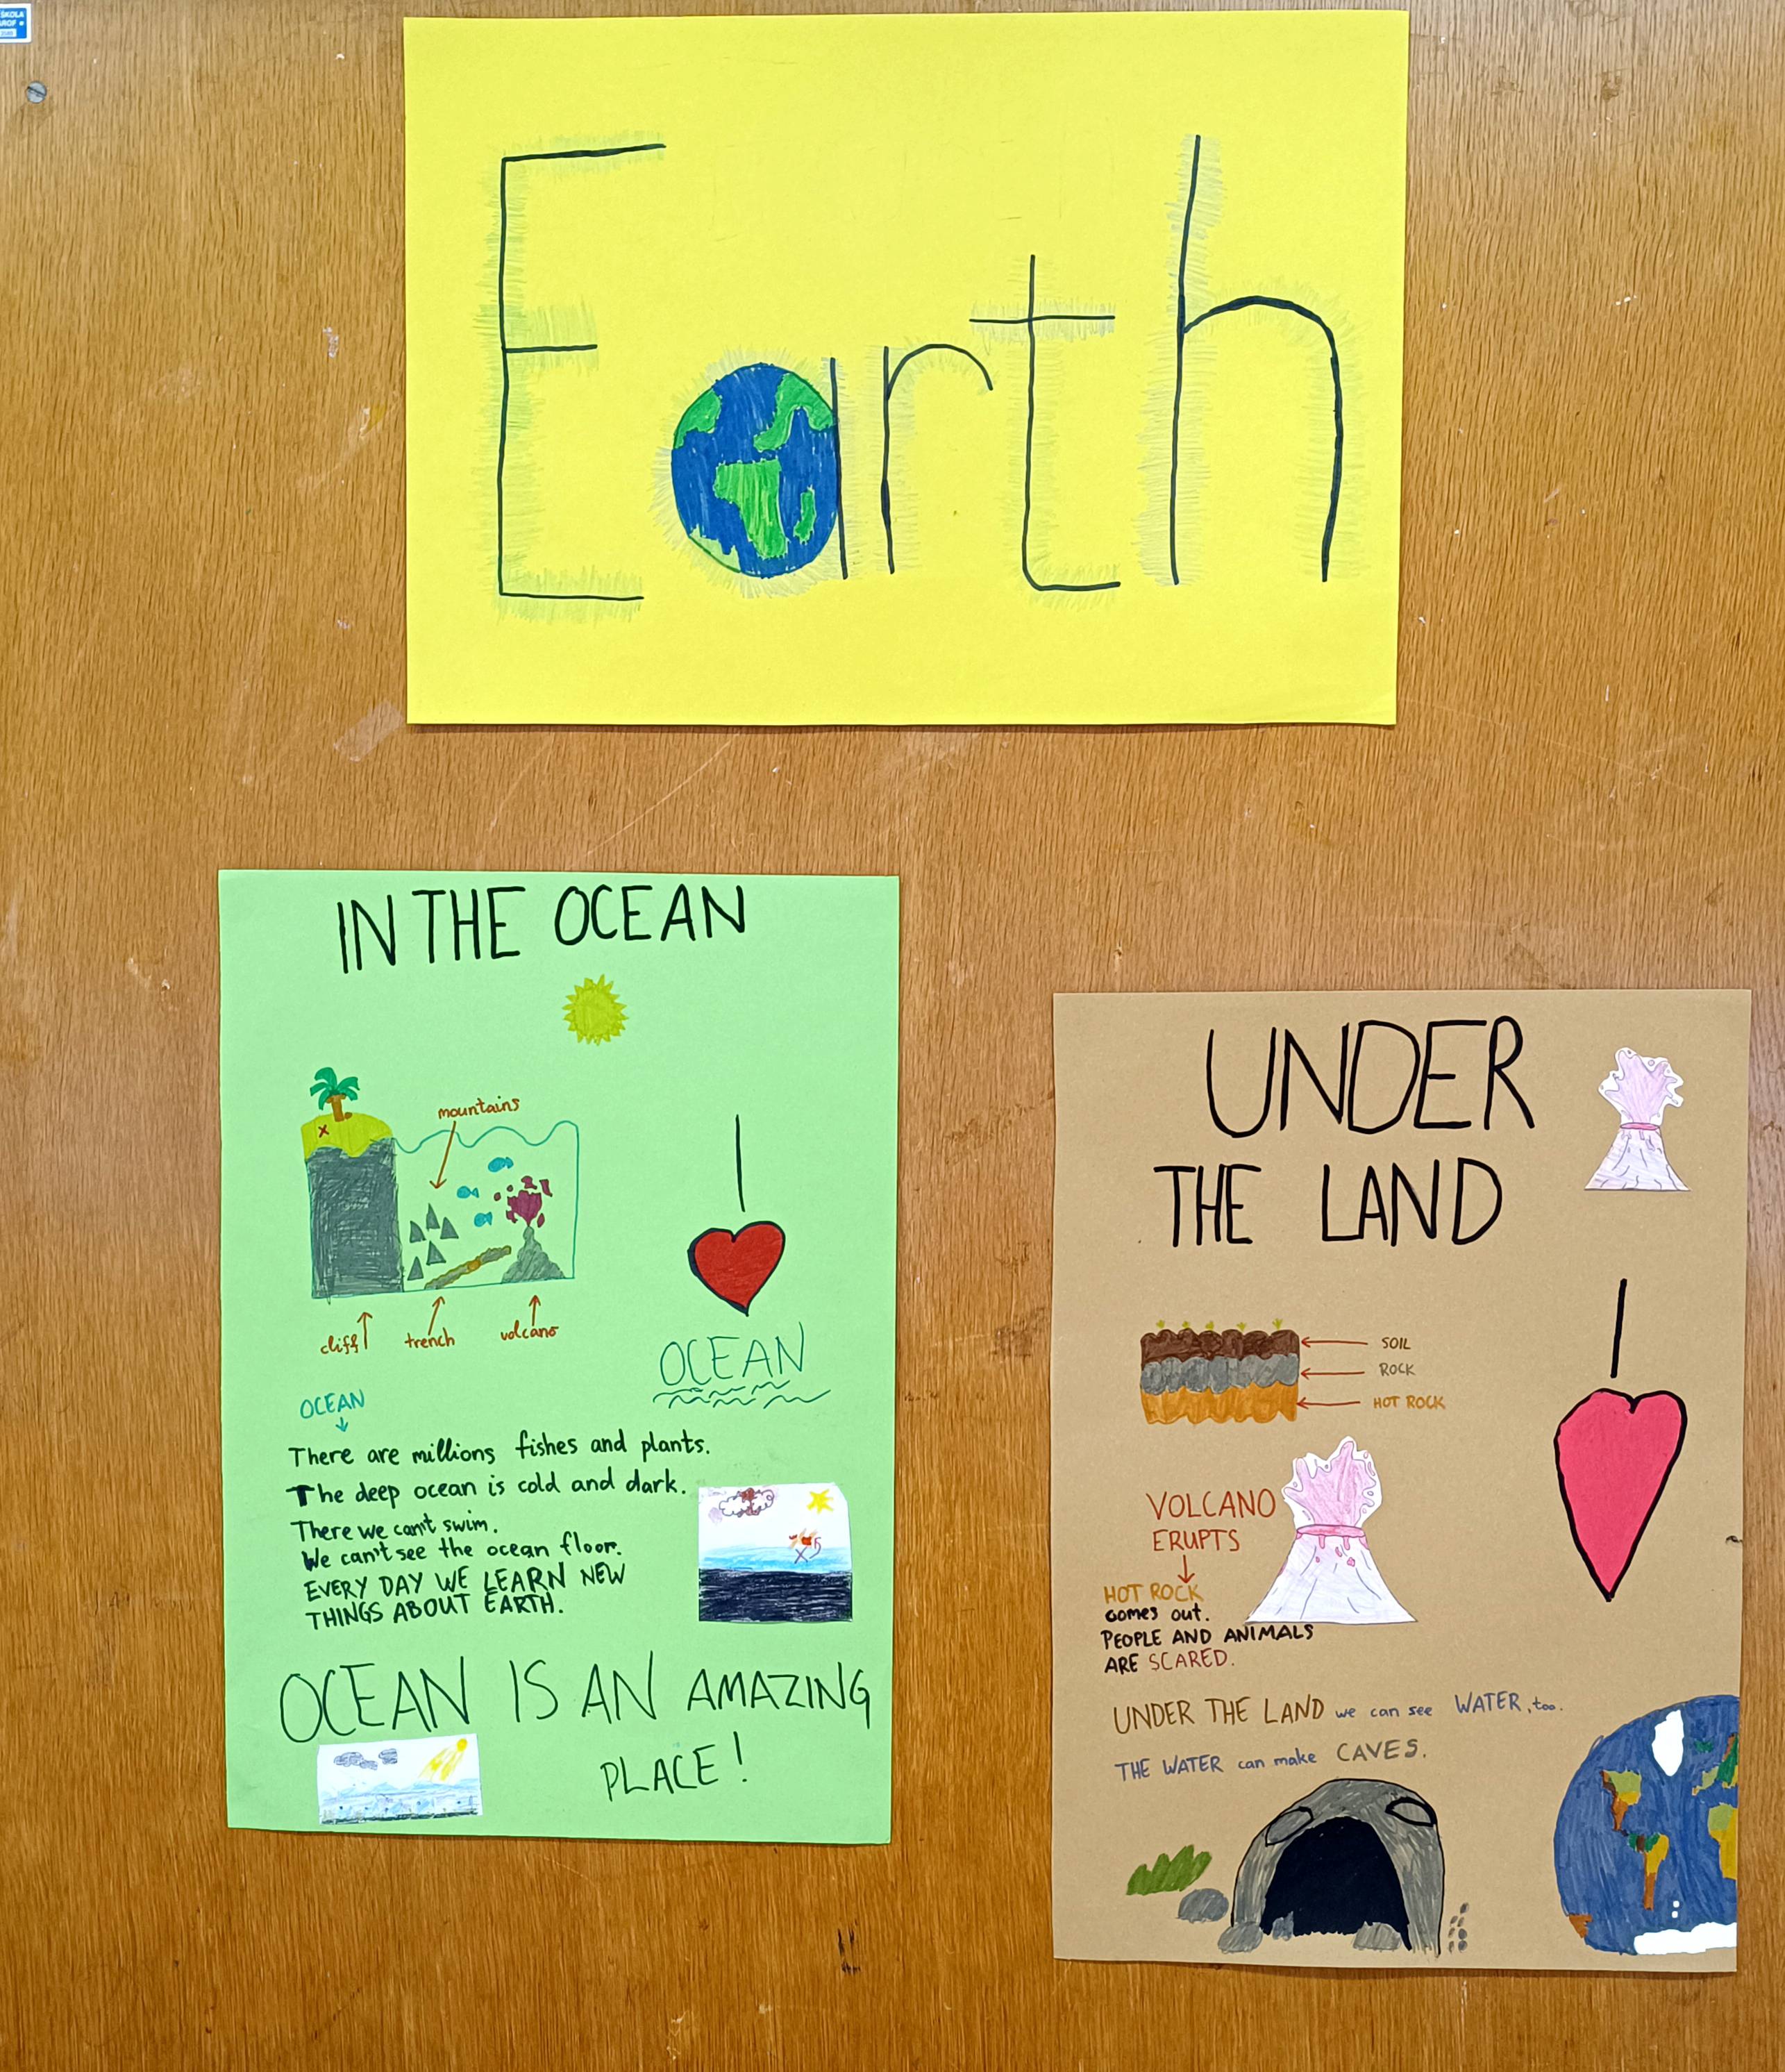 ŠKOLA
Earth
IN THE OCEAN
mountains
cliff
trench
volcano
I
OCEAN
OCEAN
There are millions fishes and plants.
The deep ocean is cold and dark.
There we can't swim.
We can't see the ocean floor.
EVERY DAY WE LEARN NEW
THINGS ABOUT EARTH.
x5
OCEAN IS AN AMAZING
PLACE!
UNDER
THE LAND
SOIL
ROCK
HOT ROCK
I
VOLCANO
ERUPTS
HOT ROCK
comes out.
PEOPLE AND ANIMALS
ARE SCARED.
UNDER THE LAND we can see WATER, too.
THE WATER can make CAVES.